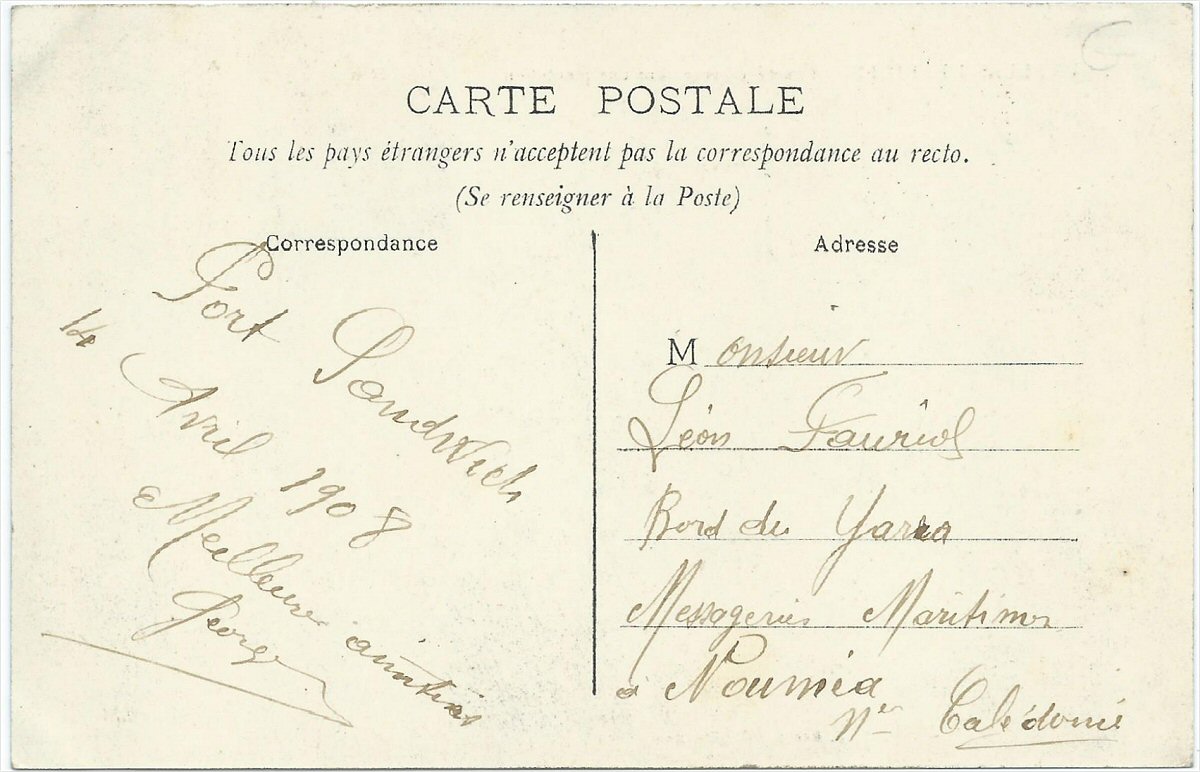 CARTE POSTALE
Tous les pays étrangers n'acceptent pas la correspondance au recto.
(Se renseigner à la Poste)
Correspondance
Port Sandwich
14 Avril 1908
Meilleures amitiés
George
Adresse
Monsieur
Léon Fauriol
Bord du Yarra
Messageries Maritimes
à Nouméa
Nlle Calédonie